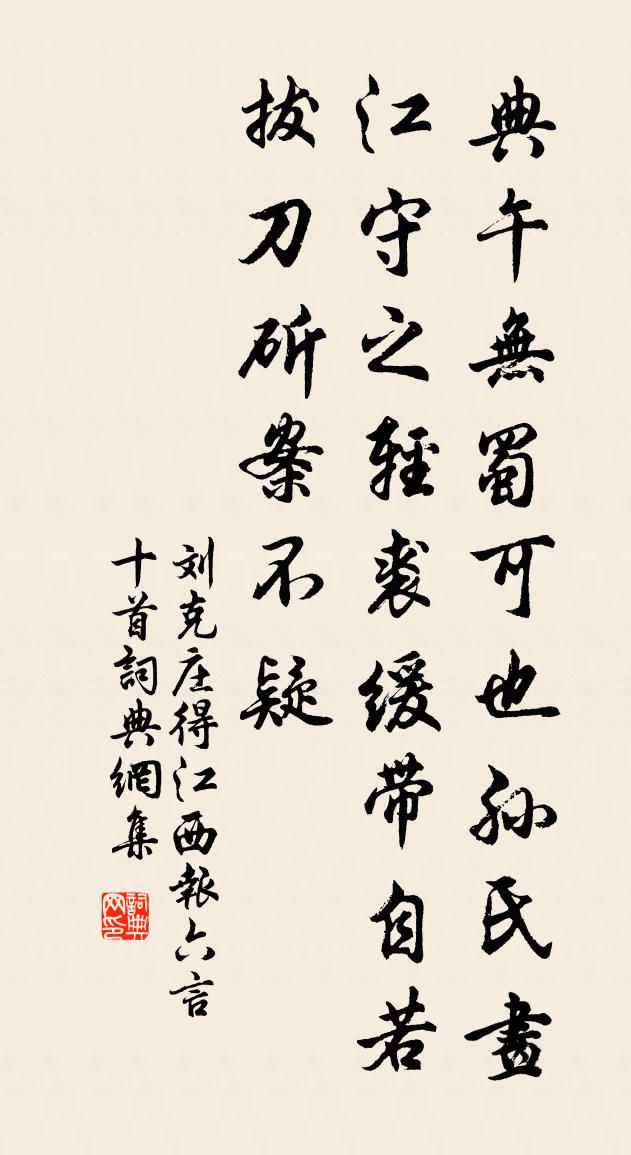 典午無蜀可也孙氏畫
江守之輕裘緩带自若
拔刀斫案不疑
刘克庄得江西報六言
十首詞典網集
詞典网印